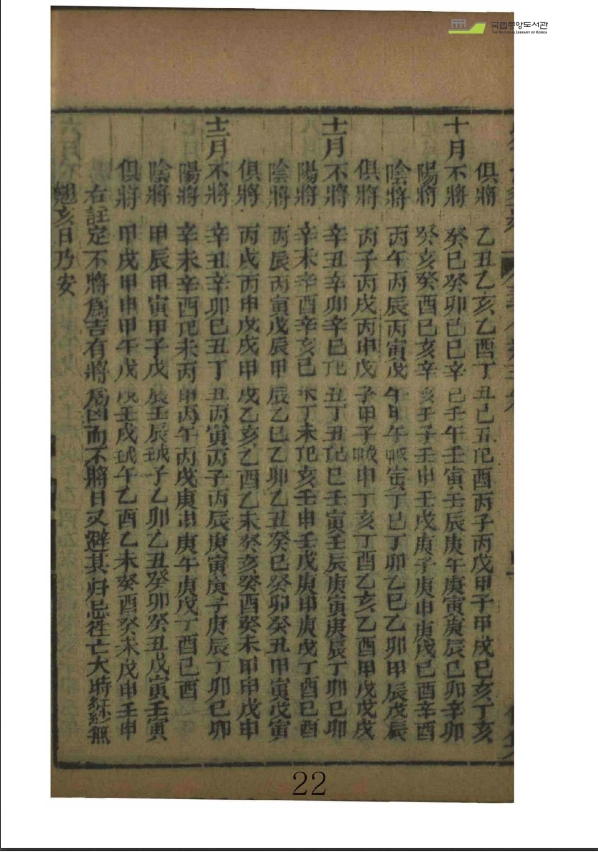 국립중앙도서관
THE NATIONAL LIBRARY OF KOREA
俱將 乙丑乙亥乙酉丁丑己丑己酉丙子丙戊甲子甲戌己亥丁亥
十月不將 癸巳癸卯己巳辛巳壬午壬寅壬辰庚午庚寅庚辰己卯辛卯
陽將 癸亥癸酉己亥辛亥壬子壬申壬戌庚子庚申庚戌己酉辛酉
陰將 丙午丙辰丙寅戊午甲午戊寅丁巳丁卯乙巳乙卯甲辰戊辰
俱將 丙子丙戌丙申戊子甲子申丁亥丁酉乙亥乙酉甲戌戊戌
十一月不將 辛丑辛卯辛巳丑丁丑己巳壬寅壬辰庚寅庚辰丁卯己卯
陽將 辛未辛酉辛亥己未丁未亥壬申壬戌庚申庚戌丁酉己酉
陰將 丙辰丙寅戊辰甲辰乙巳乙卯乙丑癸巳癸卯癸丑甲寅戊寅
俱將 丙戌丙申戊戌甲戌乙亥乙酉乙未癸亥癸酉癸未甲申戊申
十二月不將 辛丑辛卯己丑丁丑丙寅丙子丙辰庚寅庚子庚辰丁卯己卯
陽將 辛未辛酉己未丙申丙午丙戌庚申庚午庚戌丁酉己酉
陰將 甲辰甲寅甲子戊辰壬辰子乙卯乙丑癸卯癸丑戊寅壬寅
俱將 甲戌甲申甲午戊戌壬戌午乙酉乙未癸酉癸未戊申壬申
右註定不將爲吉有將爲凶而不將日又避其归忌往亡大時紅紗無
翹亥日乃安
22